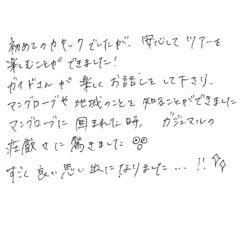 初めてのカヤックでしたが、安心してツアーを
楽しむことができました!
ガイドさんが 楽しくお話しをして下さり、
マングローブや地域のことを知ることができました
マングローブに囲まれた時、ガジュマルの
荘厳さに驚きました
すごく良い思い出になりました…!!